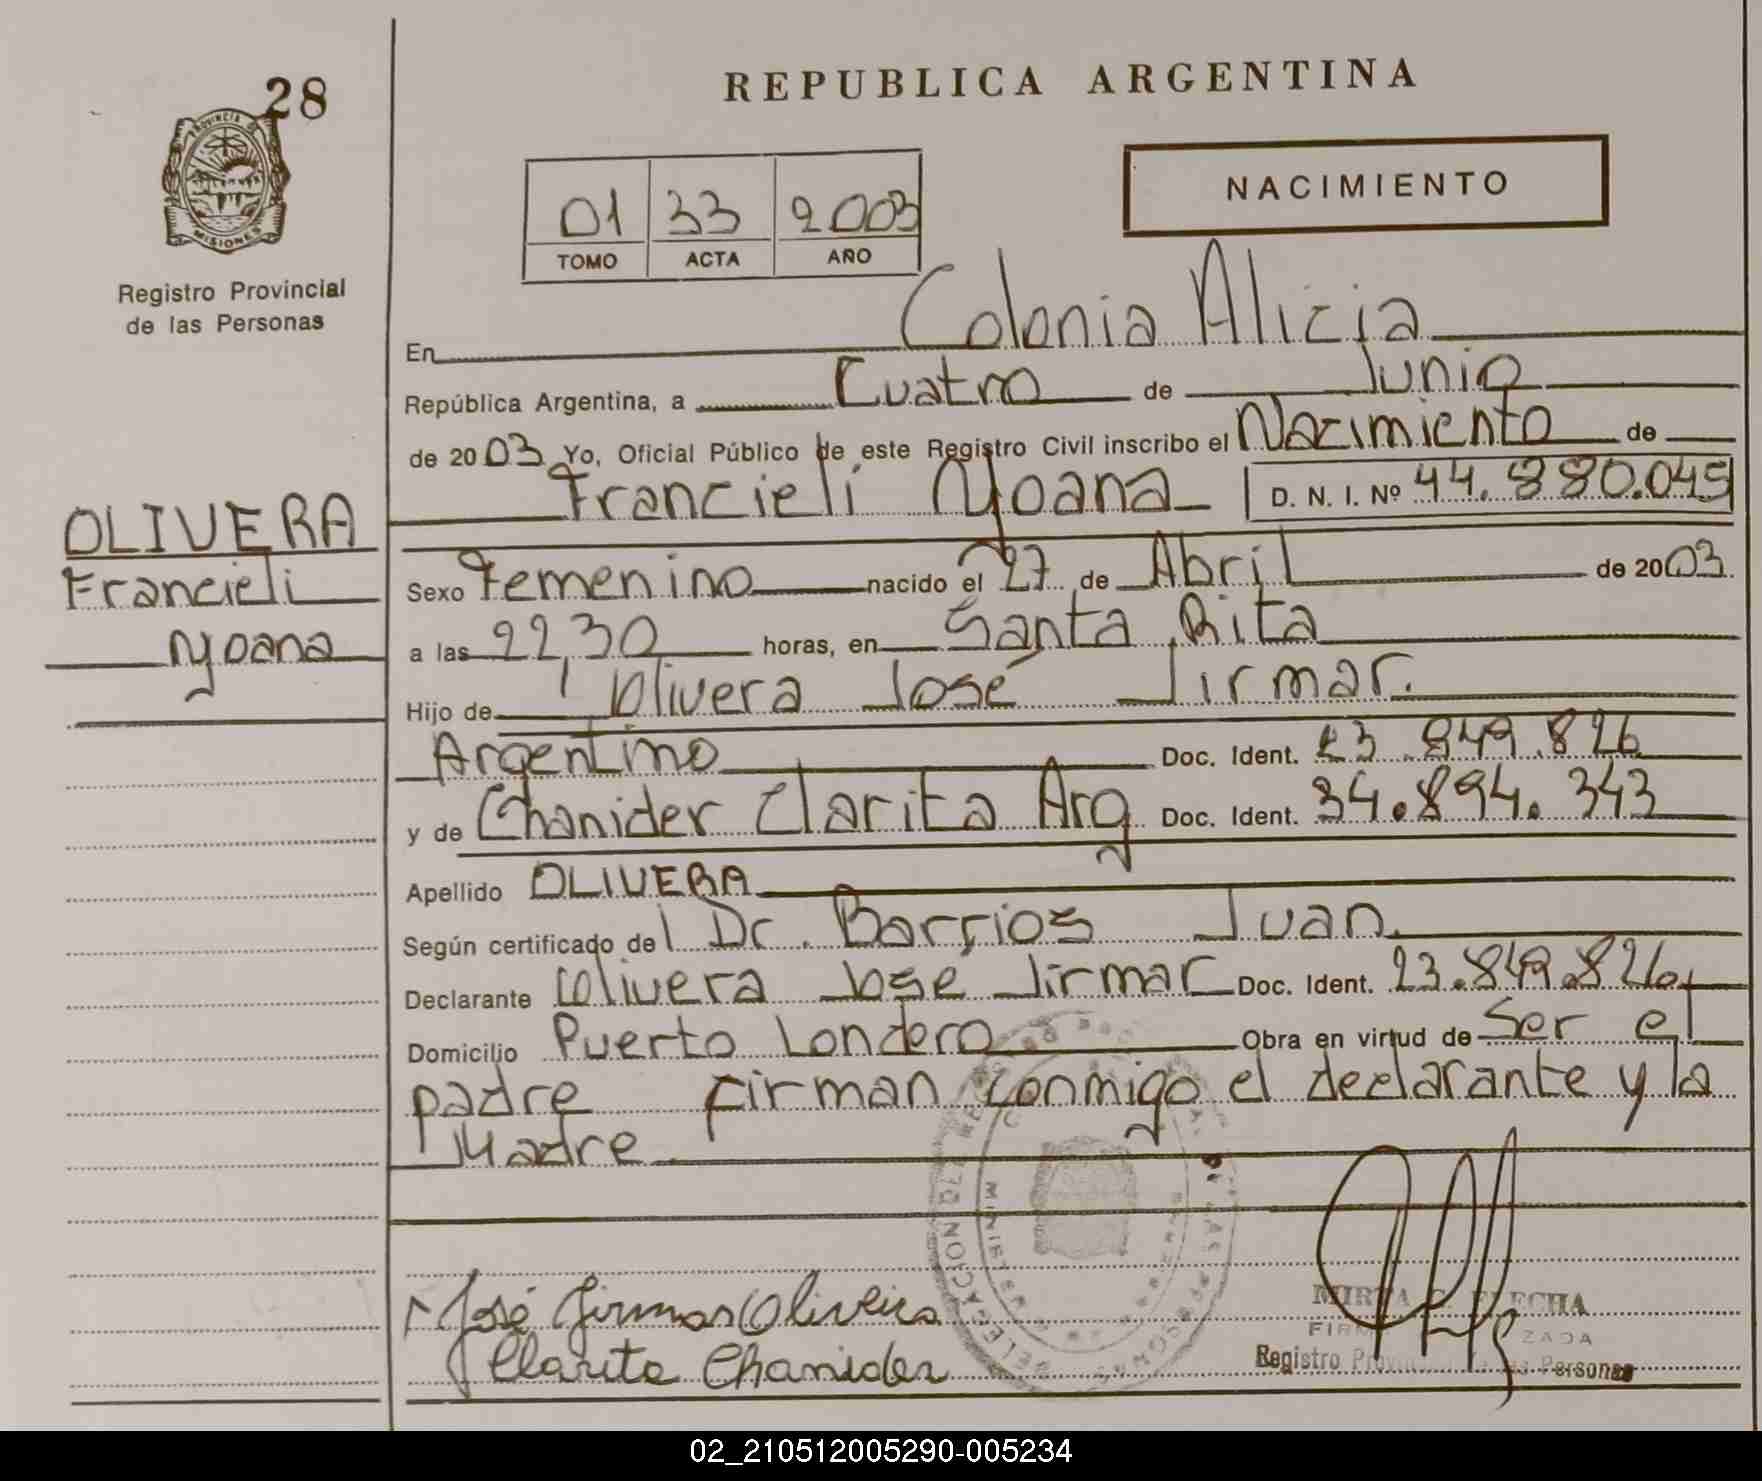 28
PROVINCIA DE
MISIONES
Registro Provincial
de las Personas
REPUBLICA ARGENTINA
01 33 2003
TOMO ACTA AÑO
NACIMIENTO
En Colonia Alicia
República Argentina, a Cuatro de Junio
de 2003 Yo, Oficial Público de este Registro Civil inscribo el Nacimiento de
Francieli Yoana D. N. I. Nº 44.880.045
OLIVERA
Francieli
Yoana
Sexo Femenino nacido el 27 de Abril de 2003
a las 22,30 horas, en Santa Rita
Hijo de Olivera José Jirmar.
Argentino Doc. Ident. 23.849.826
y de Chanider Clarita Arg Doc. Ident. 34.894.343
Apellido OLIVERA
Según certificado del Dr. Barrios Juan
Declarante Olivera José Jirmar Doc. Ident. 23.849.826
Domicilio Puerto Londero Obra en virtud de Ser el
padre firman conmigo el declarante y la
Madre
José Jirmar Oliveira
Clarita Chanider
MIRTA
Registro Personas
02_210512005290-005234